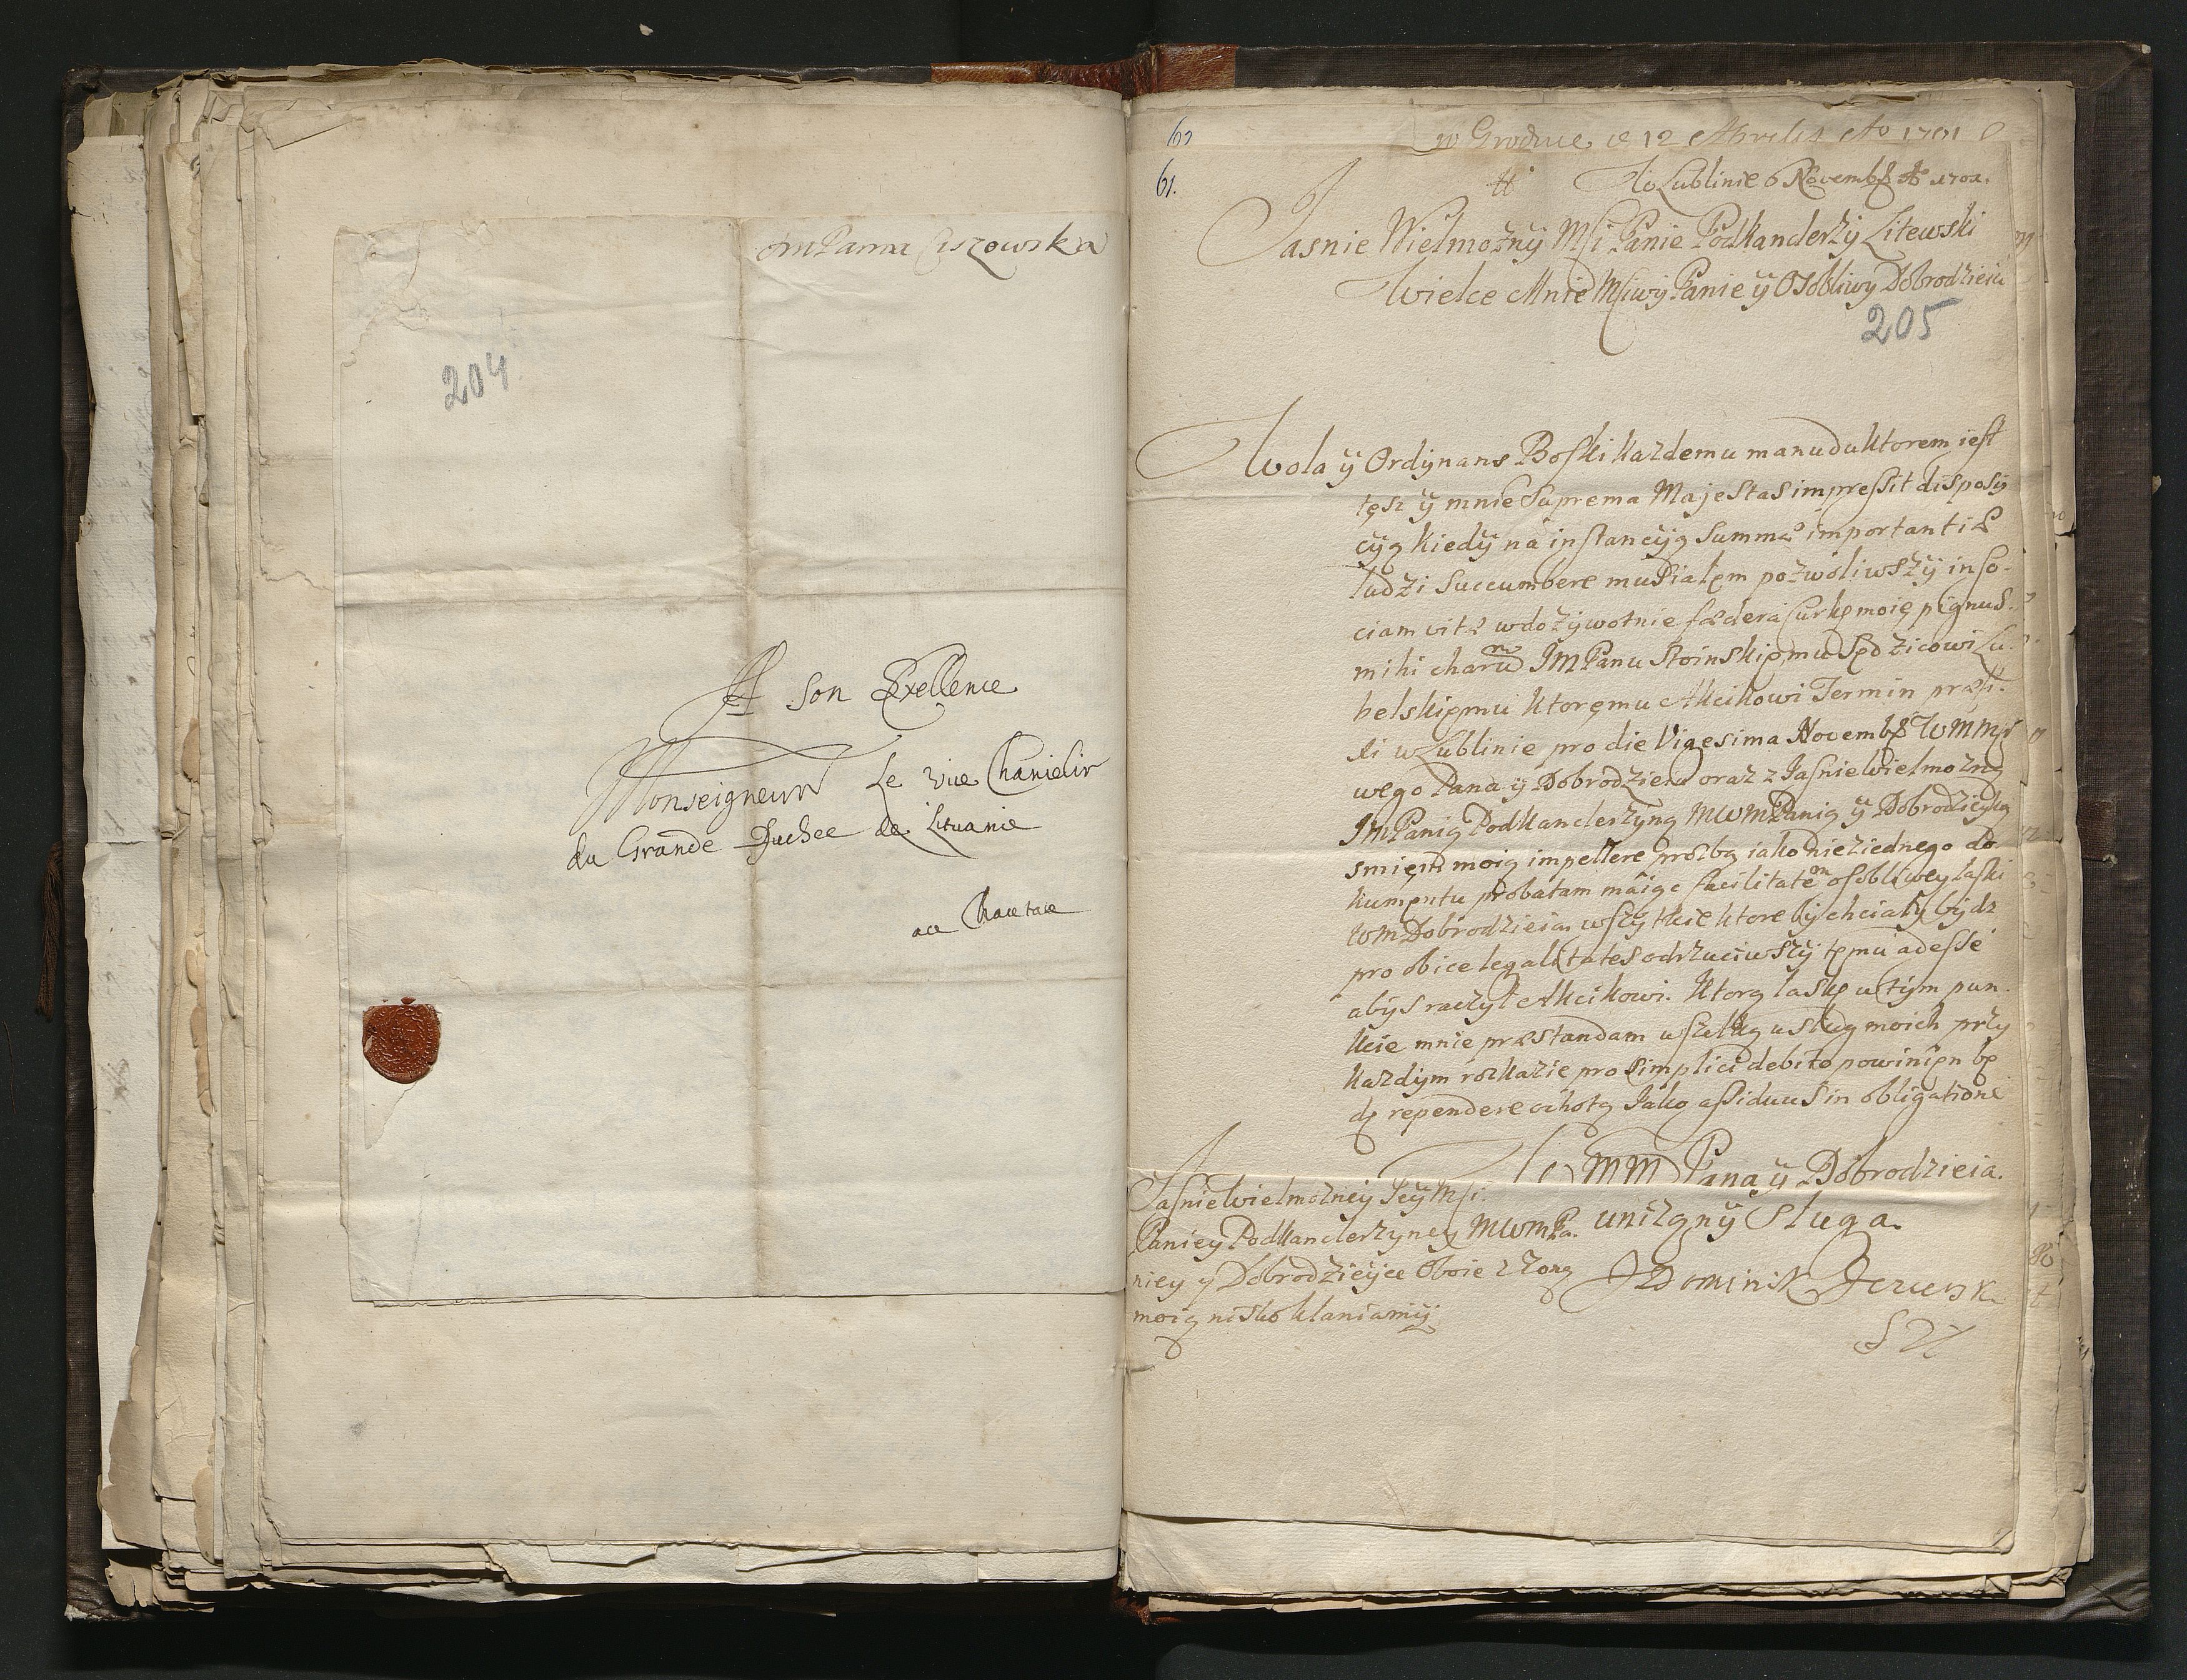 JmPanna Ciszowska
204
A Son Exellence
Monseigneur Le vice Chanielir
du Grande Duchee de Lituanie
60
w Grodnie d 12 Aprilis Ao 1701
61.
W Lublinie 6 Novembr Ao 1701.
Jasnie Wielmożnÿ Msci Panie Podkanclerzÿ Litewski
Wielce Mnie Msciwÿ Panie ÿ Osobliwy Dobrodzieiu
205
Wola ÿ Ordÿnans Boski każdemu manuduktorem iest
tęsz ÿ mnie Suprema Majestas impressit disposÿ
cÿą kiedÿ na instancÿą Summae importantiae
ludzi Succumbere musiałem pozwoliwszÿ in so-
ciam vitae w dożÿwotnie faedera Curkę moię pignus
mihi charum JmPanu Stoinskiemu Sędzicowi Lu-
belskiemu ktoremu Akcikowi Termin praefi-
xi w Lublinie pro die Vigesima Novembr WMMsci
wego Pana ÿ Dobrodzieia oraz z Jasnie Wielmożną
JmPanią Podkanclerzÿną MWMPanią ÿ Dobrodzieÿką
smiem moią impellere prozbą iako nieziednego do
kumentu probatam maiąc facilitatem osobliwey łaski
WM Dobrodzieia wszÿtkie ktore bÿ chciałÿ bÿdz
pro obice legalitates odrzuciwszÿ temu adesse
abÿs raczÿł Akcikowi. Ktorą łaskę w tÿm pun-
kcie mnie praestandam wszelką usług moich przÿ
każdÿm rozkazie pro simplici debito powinien bę
dę rependere ochotą Jako assiduus in obligatione
WMM Pana ÿ Dobrodzieia.
uniżonÿ Sługa
JDominik
Jasnie Wielmożneÿ Jeÿ Msci
Panieÿ Podkanclerzÿneÿ MWMPa-
nieÿ ÿ Dobrodzieÿce Oboie z Żoną
moią nisko kłaniamÿ